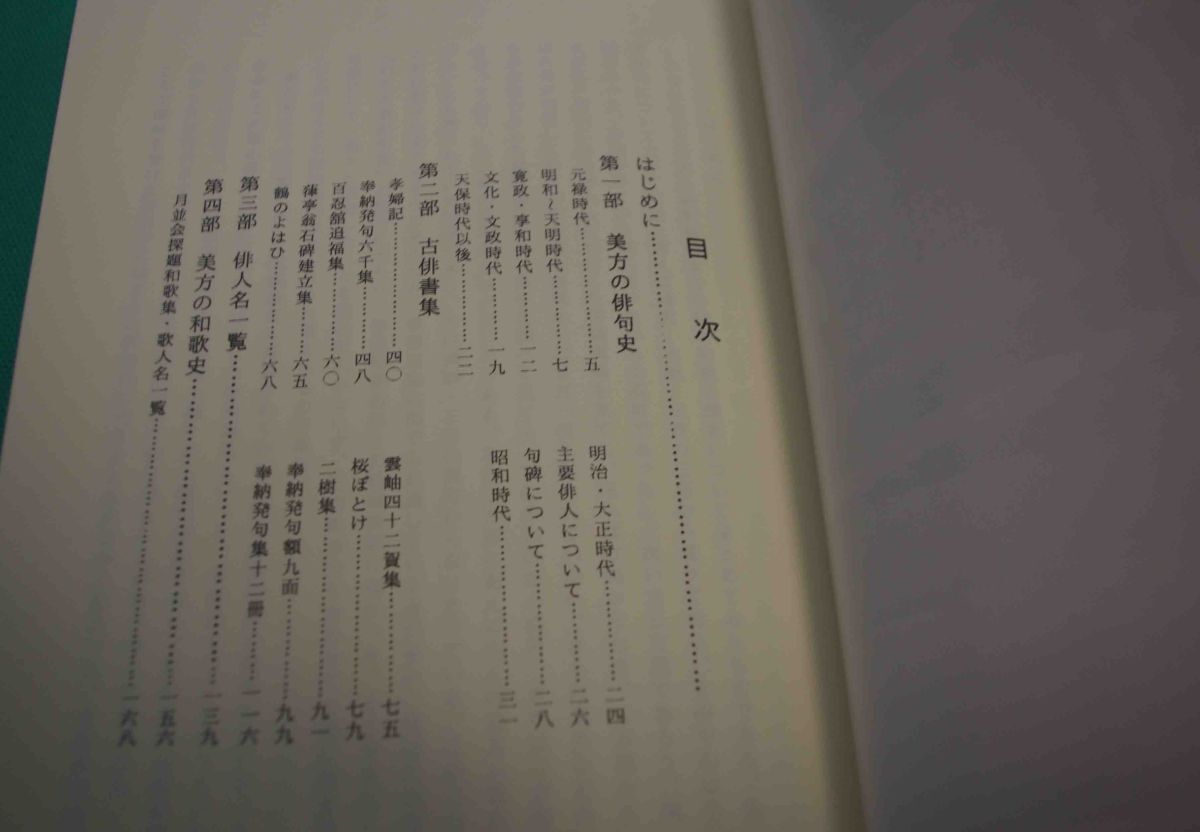 目次
はじめに……………………………
第一部 美方の俳句史
元禄時代……………………五
明和〜天明時代……………七
寛政・享和時代……………一二
文化・文政時代……………一九
天保時代以後………………二二
明治・大正時代……………二四
主要俳人について…………二六
句碑について………………二八
昭和時代……………………三一
第二部 古俳書集
孝婦記………………………四〇
奉納発句六千集……………四八
百忍舘追福集………………六〇
蓱亭翁石碑建立集…………六五
鶴のよはひ…………………六八
雲岫四十二賀集……………七五
桜ぼとけ……………………七九
二樹集………………………九一
奉納発句額九面……………九九
奉納発句集十二冊…………一一六
第三部 俳人名一覧……………………一三九
第四部 美方の和歌史…………………一五六
月並会探題和歌集・歌人名一覧………一六八